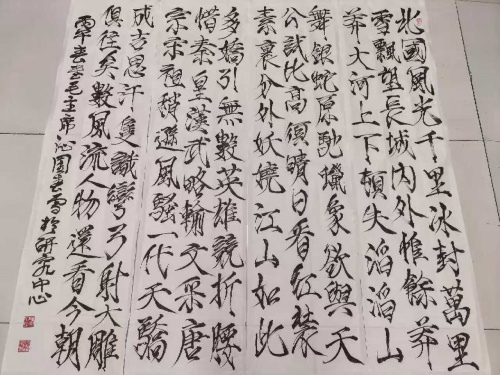 北國風光千里冰封萬里
雪飄望長城內外惟餘莽
莽大河上下頓失滔滔山
舞銀蛇原馳蠟象欲與天
公試比高須晴日看紅裝
素裹分外妖嬈江山如此
多嬌引無數英雄競折腰
惜秦皇漢武略輸文采唐
宗宋祖稍遜風騷一代天驕
成吉思汗隻識彎弓射大雕
俱徃矣數風流人物還看今朝
毛主席沁園春雪於研究中心